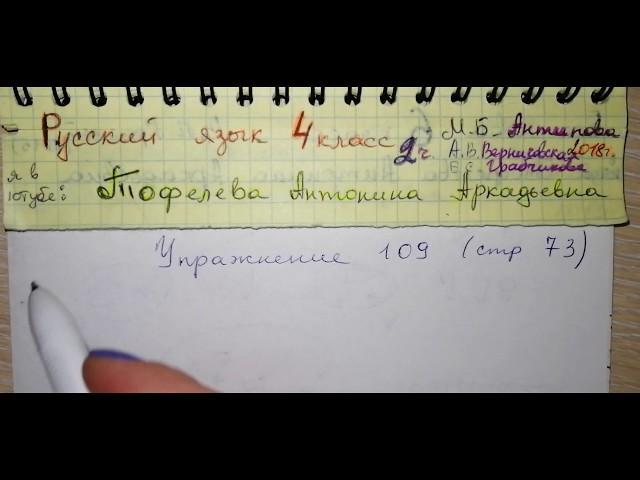 - Русский язык 4 класс 2 ч. М.Б. Антипова
А.В. Верниковская 2018 г.
Е.С. Грабчикова
я в
ютубе: Тофелева Антонина Аркадьевна
Упражнение 109 (стр 73)